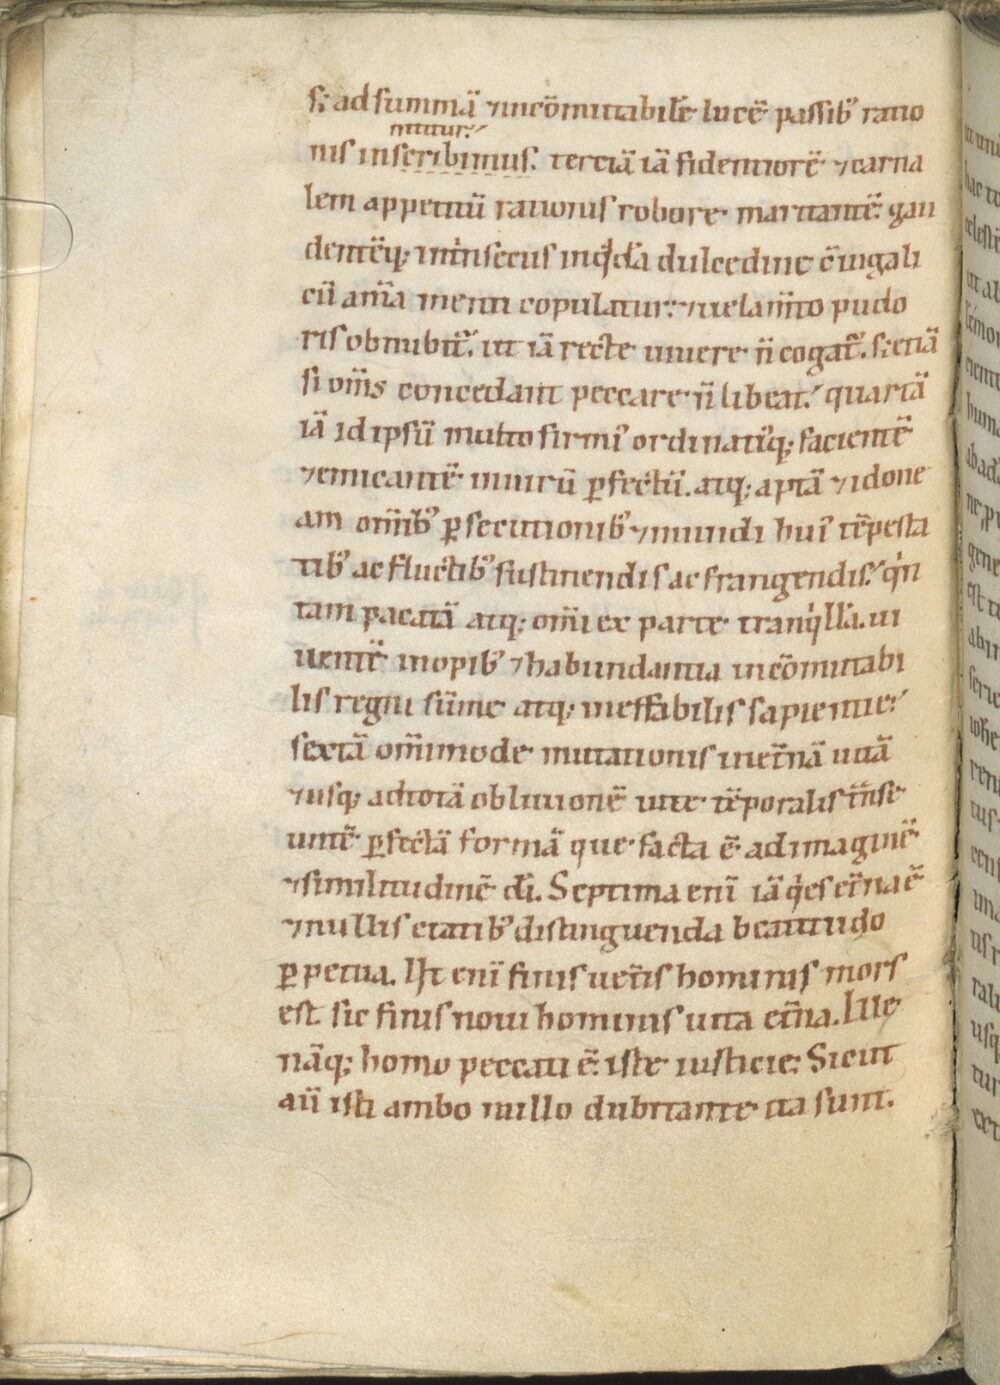 s; ad summā ⁊incōmutabilē lucē passib᾽ ratio
nititur
nis inscribimus. terciā iā fidentiorē ⁊carna
lem appetitū rationis robore maritantē. gau
dentēq; intrinsecus in q̇dā dulcedine c̄iugali
cū anīa menti copulatur. ⁊uelam̄to pudo
ris obnubit̄. ut iā recte uiuere n̄ cogat̄. s; etiā
si om̄s concedant peccare n̄ libeat. quartā
iā id ipsū multo firmi᾽ ordinati᾽q; facientē
⁊emicantē in uirū ꝑfectū. atq; aptā ⁊idone
am om̄ib᾽ ꝑsecutionib᾽ ⁊mundi hui᾽ tēpesta
tib᾽ ac fluctib᾽ sustinendis ac frangendis. q̇n
tam pacatā atq; om̄i ex parte tranq̇llā. ui
uentē in opib᾽ ⁊habundantia incōmutabi
lis regni sūme atq; ineffabilis sapientie.
sextā om̄imode mutationis in et̄nā uitā
⁊usq; ad totā obliuionē uite tēporalis t̄nse
untē ꝑfectā formā que facta ē ad imaginē
⁊similitudinē dī. Septima enī iā q̇es et̄na ē
⁊nullis etatib᾽ distinguenda beatitudo
ꝑpetua. Ut enī finis uet̄is hominis mors
est. sic finis noui hominis uita et̄na. Ille
nāq; homo peccati ē. iste iusticie. Sicut
aū isti ambo nullo dubitante ita sunt.